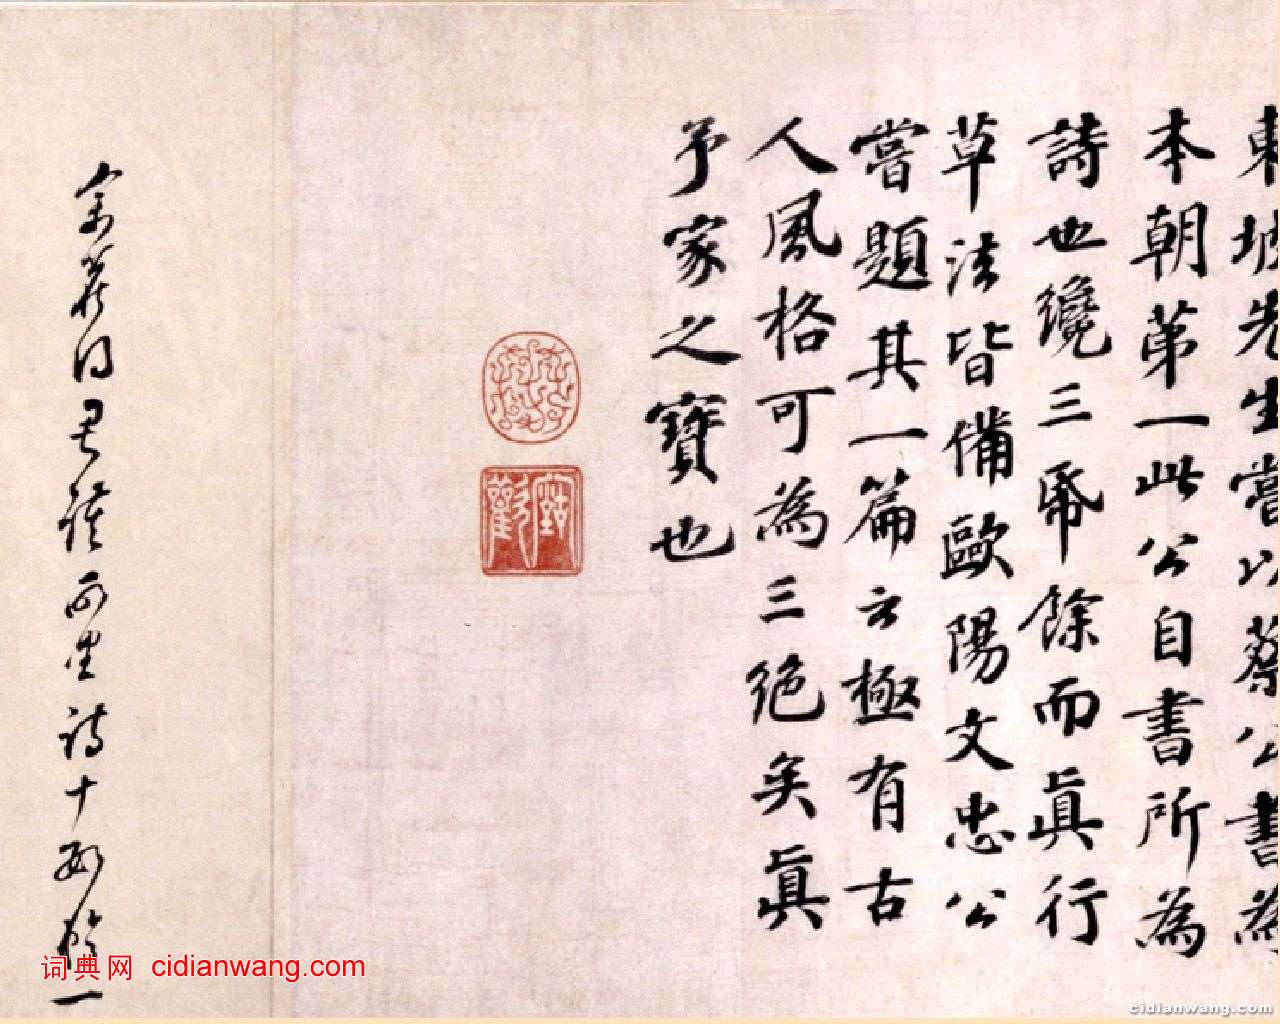 東坡先生嘗以蔡公書為
本朝第一此公自書所為
詩也纔三帋餘而眞行
草法皆備歐陽文忠公
嘗題其一篇云極有古
人風格可為三絕矣眞
予家之寶也
余舊得君謨
詩十
一
词典网 cidianwang.com
cidianwang.com